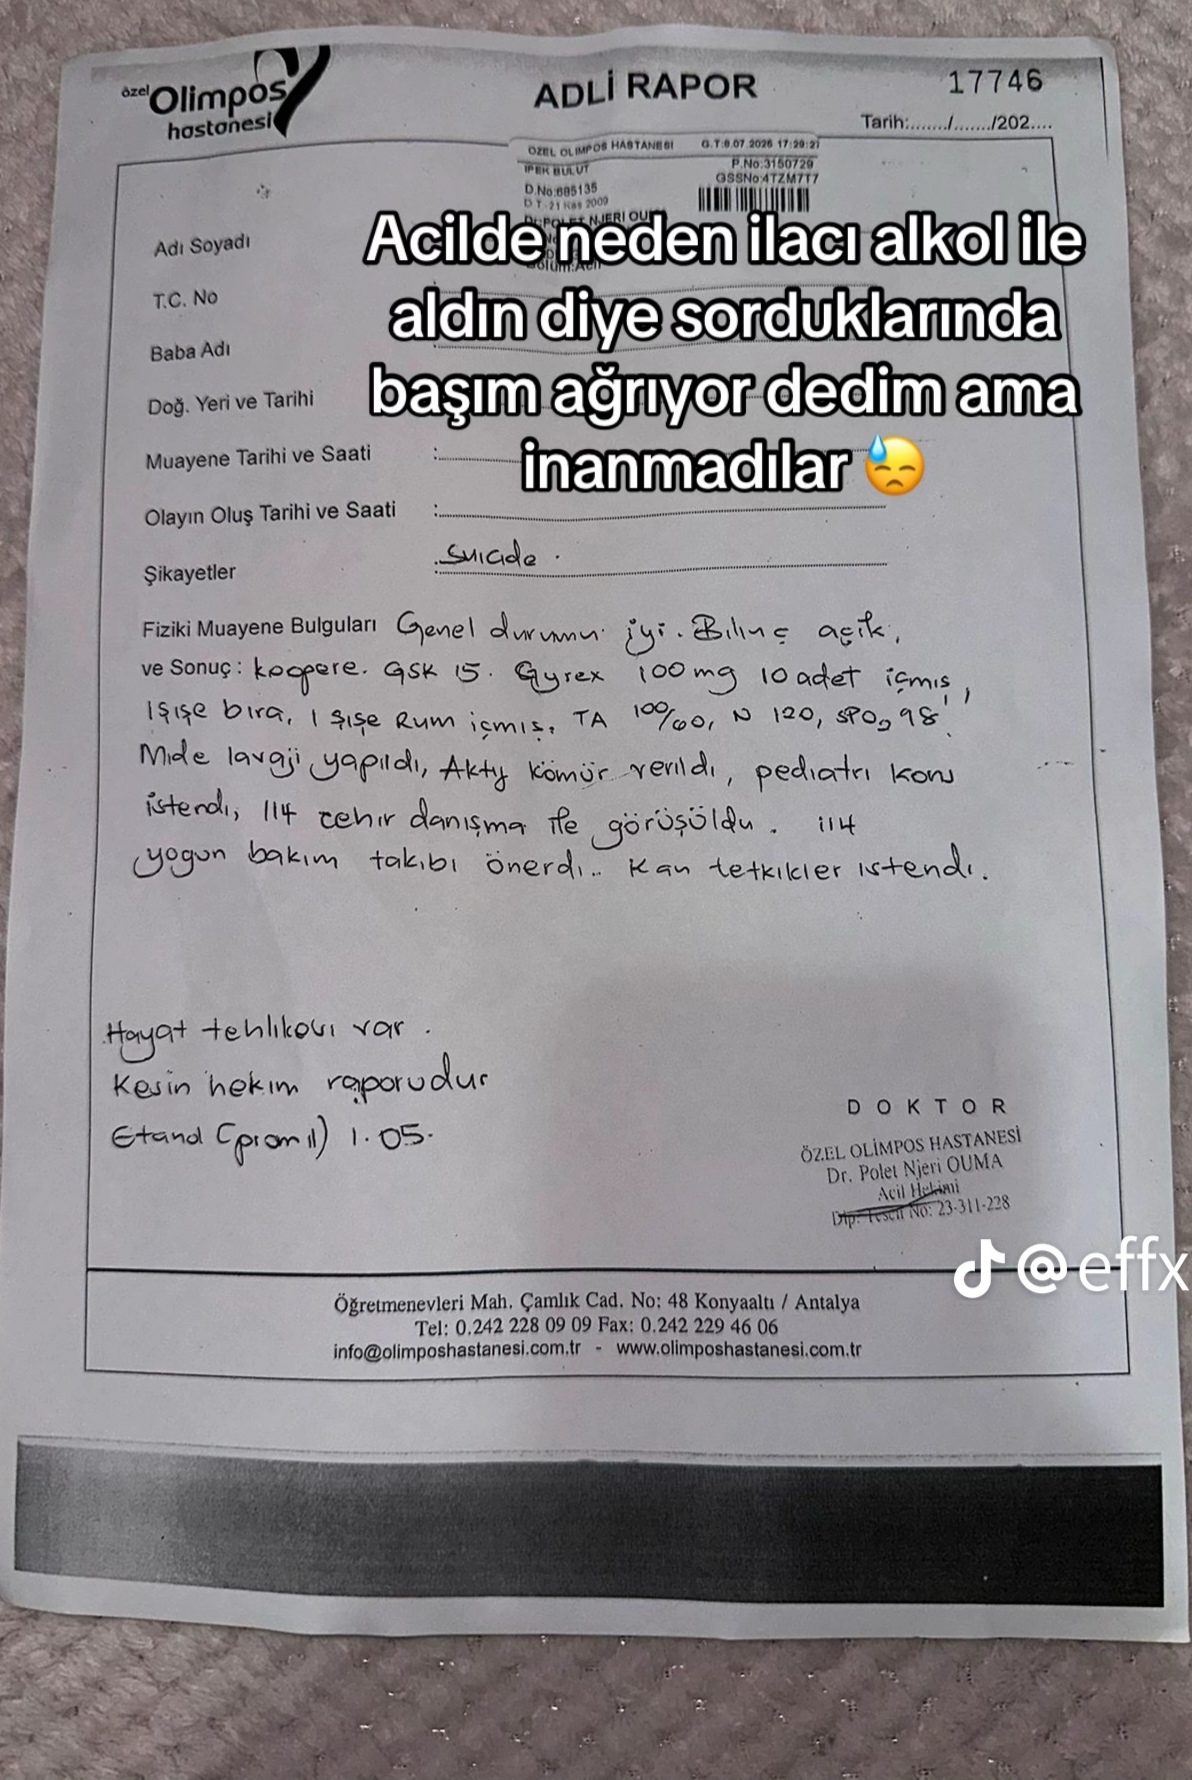 özel Olimpos hastanesi
ADLİ RAPOR
17746
Tarih:......./......./202....
ÖZEL OLİMPOS HASTANESİ G.T:8.07.2026 17:29:27
İPEK BULUT P.No:3150729
D.No:685135 GSSNo:4TZM7T7
D.T:21 Kas 2009
POLET NJERI OUMA
Bölüm:Acil
Acilde neden ilacı alkol ile
aldın diye sorduklarında
başım ağrıyor dedim ama
inanmadılar 😓
Adı Soyadı
T.C. No
Baba Adı
Doğ. Yeri ve Tarihi
Muayene Tarihi ve Saati :
Olayın Oluş Tarihi ve Saati :
Şikayetler : Suicide.
Fiziki Muayene Bulguları Genel durumu iyi. Bilinç açık,
ve Sonuç : koopere. GSK 15. Gyrex 100 mg 10 adet içmiş,
1 şişe bira, 1 şişe Rum içmiş. TA 100/60, N 120, SPO2 98.
Mide lavajı yapıldı, Aktif kömür verildi, pediatri kons
istendi, 114 zehir danışma ile görüşüldu. 114
yogun bakım takibi önerdi.. Kan tetkikler istendi.
Hayat tehlikesi var.
Kesin hekim raporudur
Etanol (promil) 1.05.
DOKTOR
ÖZEL OLİMPOS HASTANESİ
Dr. Polet Njeri OUMA
Acil Hekimi
Dip. Tescil No: 23-311-228
@effx
Öğretmenevleri Mah. Çamlık Cad. No: 48 Konyaaltı / Antalya
Tel: 0.242 228 09 09 Fax: 0.242 229 46 06
info@olimposhastanesi.com.tr - www.olimposhastanesi.com.tr